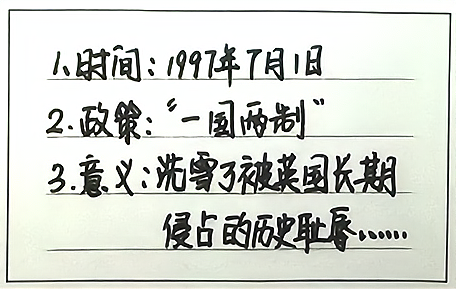 1、时间：1997年7月1日
2.政策：“一国两制”
3.意义：洗雪了被英国长期
侵占的历史耻辱……